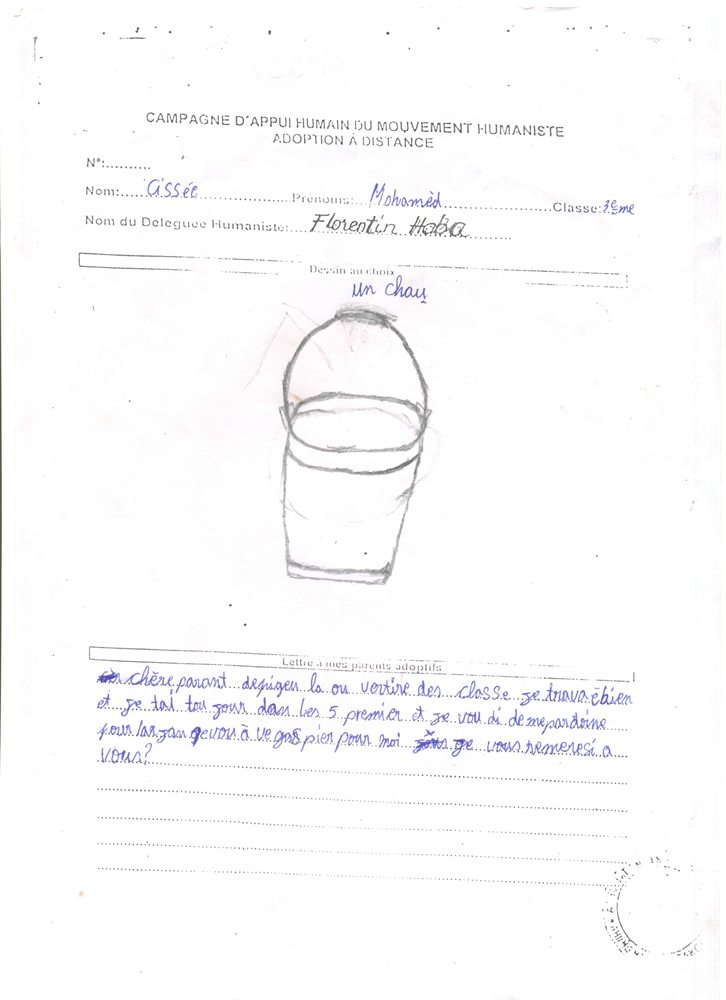 CAMPAGNE D'APPUI HUMAIN DU MOUVEMENT HUMANISTE
ADOPTION À DISTANCE
N°:..........
Nom:..... Cissée ..................Prénoms:... Mohamèd ......................Classe:3ème
Nom du Deleguee Humaniste:.... Florentin Haba ..........
Dessin au choix
un chau
Lettre à mes parents adoptifs
chère parant depigeu la ou vertire des classe je trava è bien
et je tal tou jour dan les 5 premier et je vou di de me pardoine
pour lar jan qe vou à ve gas pier pour moi je vous remeresi a
vous?